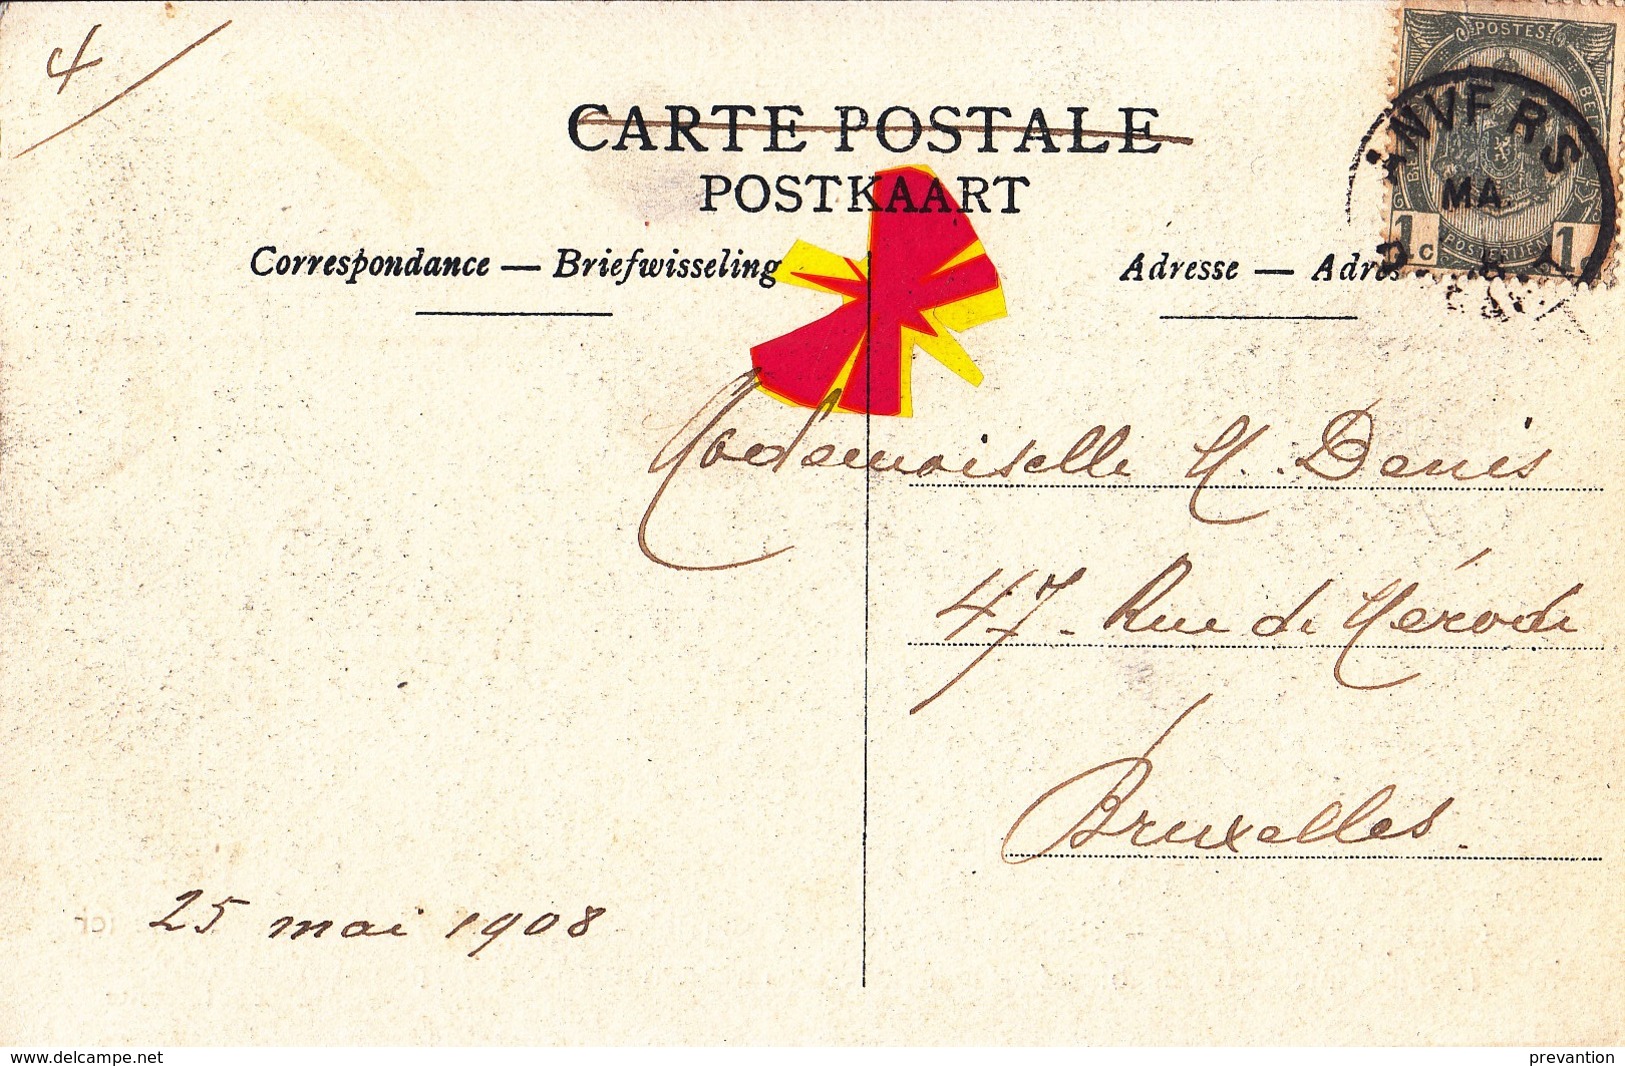 4
CARTE POSTALE
POSTKAART
Correspondance — Briefwisseling
Adresse — Adres
POSTES
ANVERS
MA
1 c 1 c
POSTERIJEN
Mademoiselle H. Denis
47 - Rue de Mérode
Bruxelles.
25 mai 1908
www.delcampe.net
prevantion